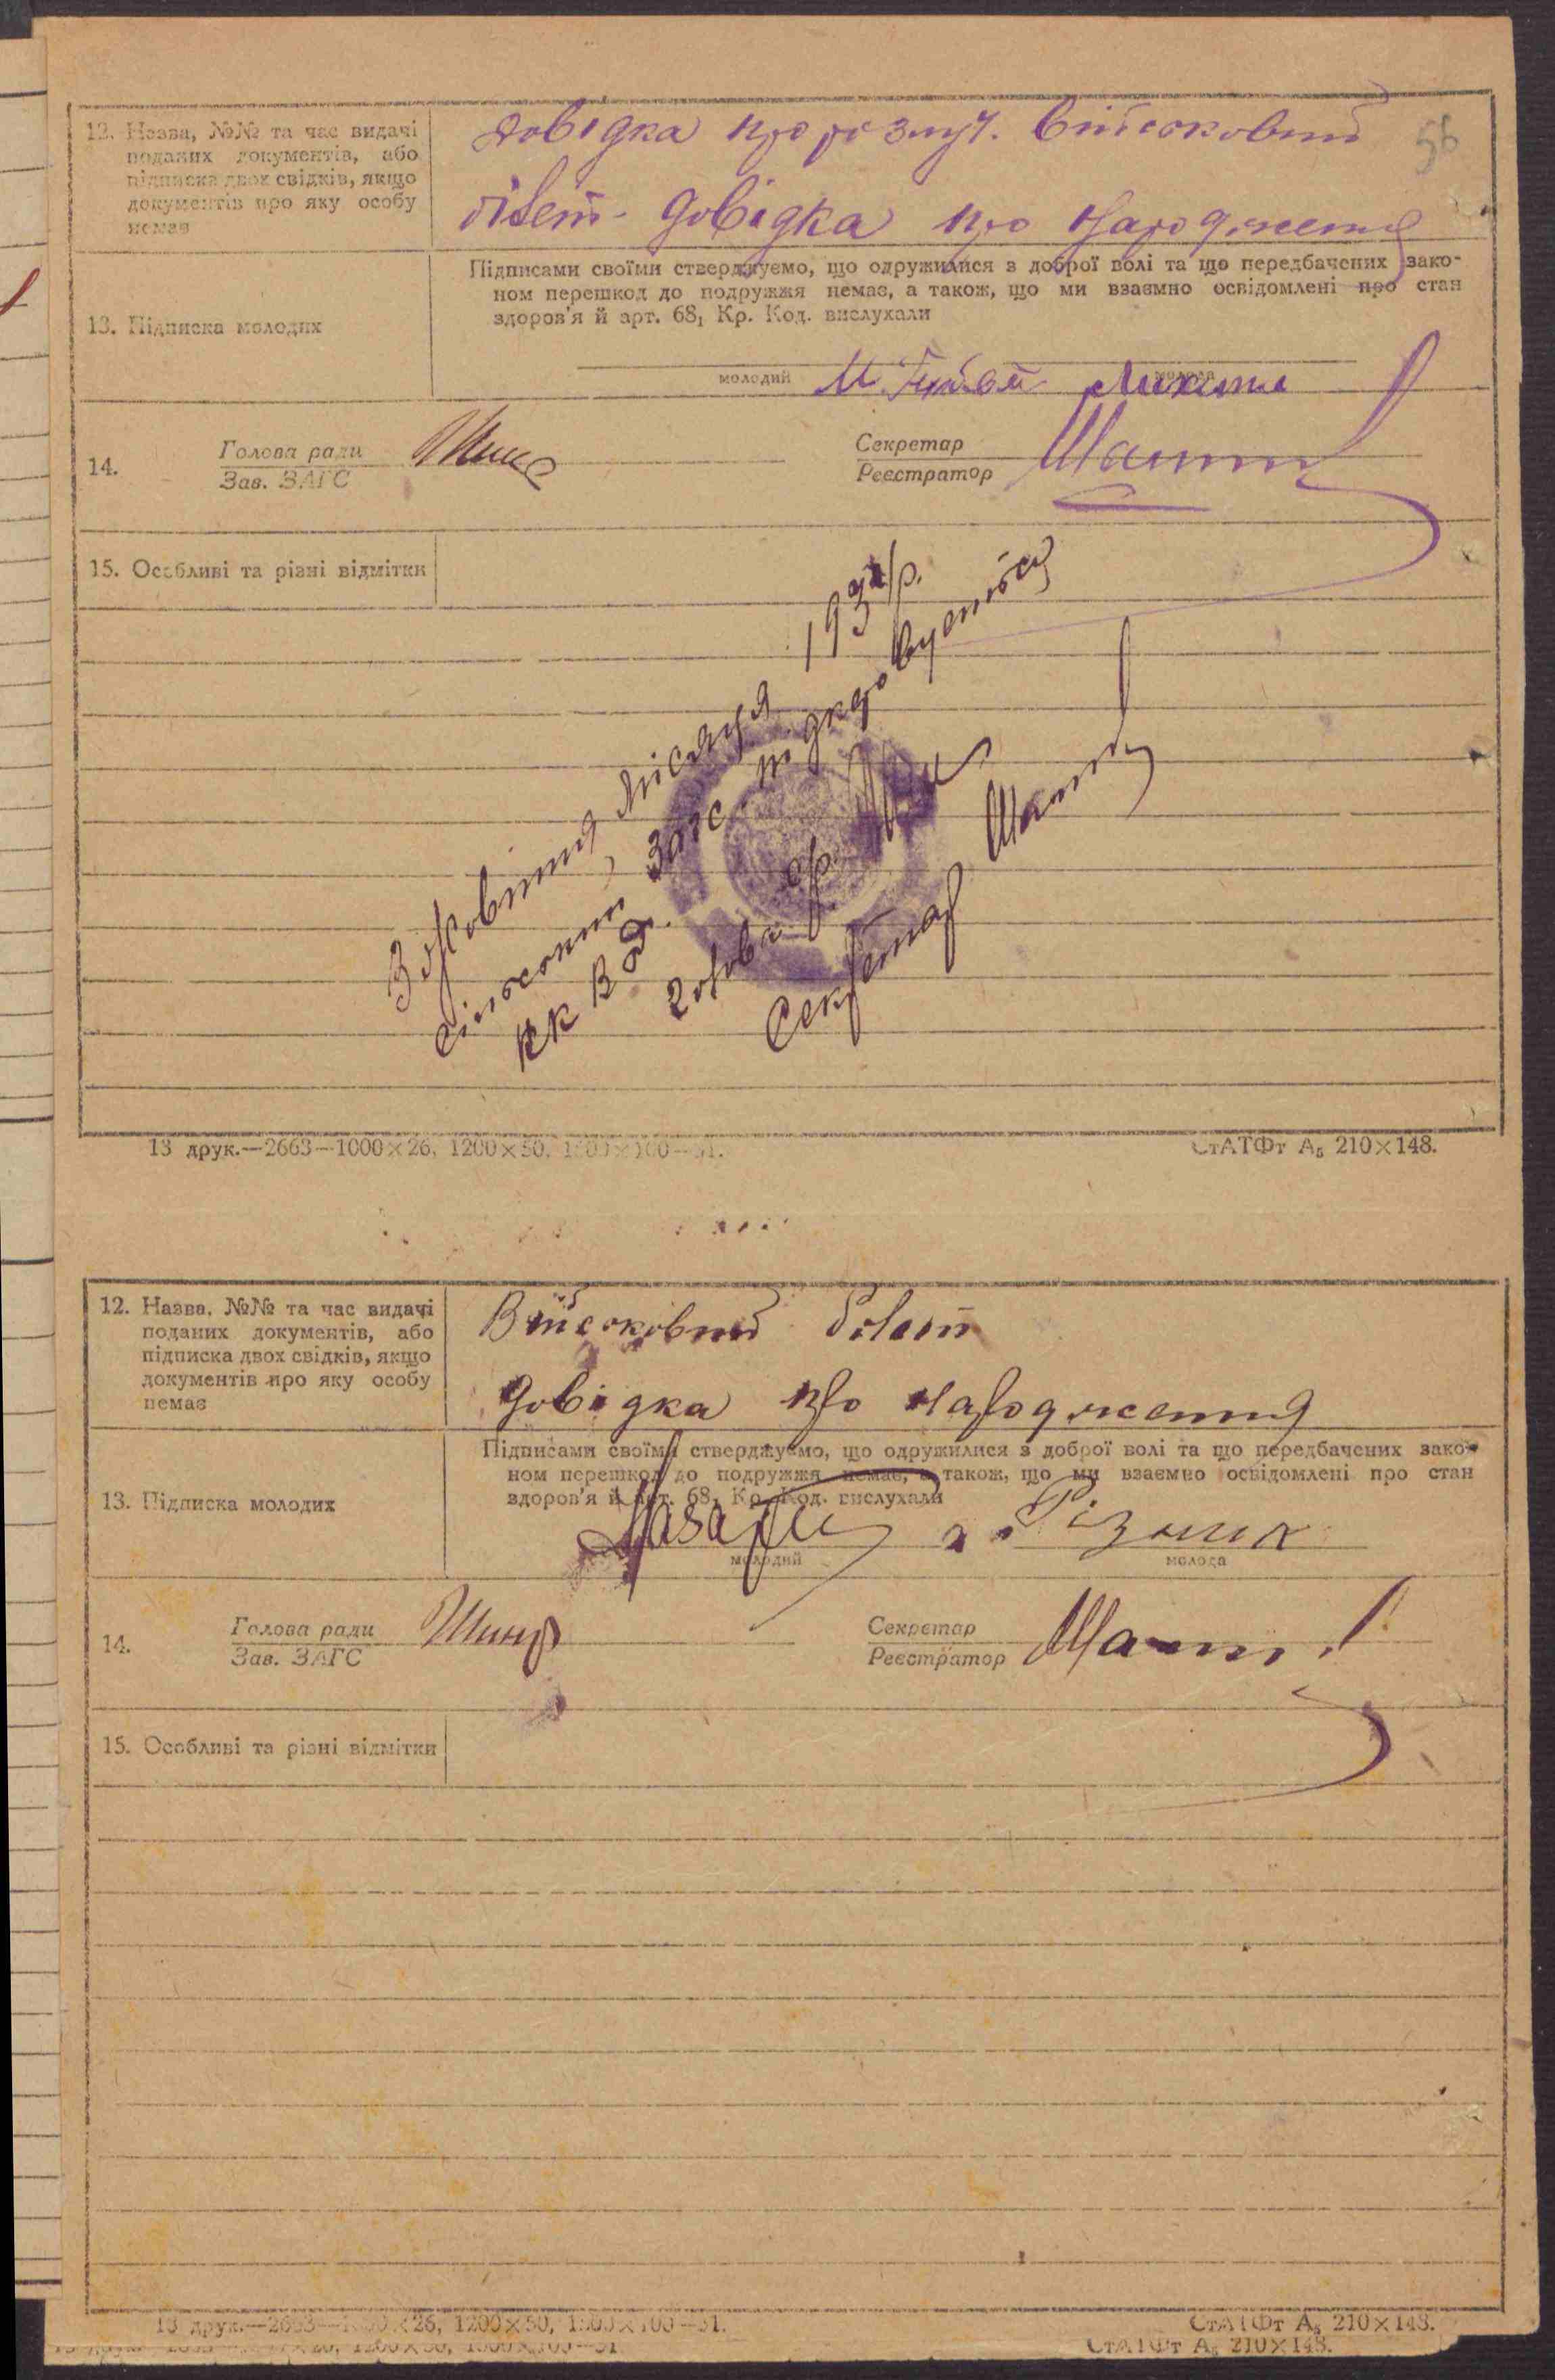 12. Назва, №№ та час видачі
поданих документів, або
підписка двох свідків, якщо
документів про яку особу
немає
довідка про розлуч. військовий
білет. довідка про народження
56
13. Підписка молодих
Підписами своїми стверджуємо, що одружилися з доброї волі та що передбачених зако-
ном перешкод до подружжя немає, а також, що ми взаємно освідомлені про стан
здоров'я й арт. 68, Кр. Код. вислухали
молодий
молода
14.
Голова ради
Зав. ЗАГС
Секретар
Реєстратор
15. Особливі та різні відмітки
З жовтня місяця 193 р.
Загс
Голова с/р
Секретар
13 друк.—2663—1000×26, 1200×50, 1500×100—31.
СтАТФт А₅ 210×148.
12. Назва, №№ та час видачі
поданих документів, або
підписка двох свідків, якщо
документів про яку особу
немає
Військовий білет
довідка про народження
13. Підписка молодих
Підписами своїми стверджуємо, що одружилися з доброї волі та що передбачених зако-
ном перешкод до подружжя немає, а також, що ми взаємно освідомлені про стан
здоров'я й арт. 68, Кр. Код. вислухали
молодий
молода
14.
Голова ради
Зав. ЗАГС
Секретар
Реєстратор
15. Особливі та різні відмітки
13 друк.—2663—1000×26, 1200×50, 1500×100—31.
СтАТФт А₅ 210×148.
СтАТФт А₅ 210×148.